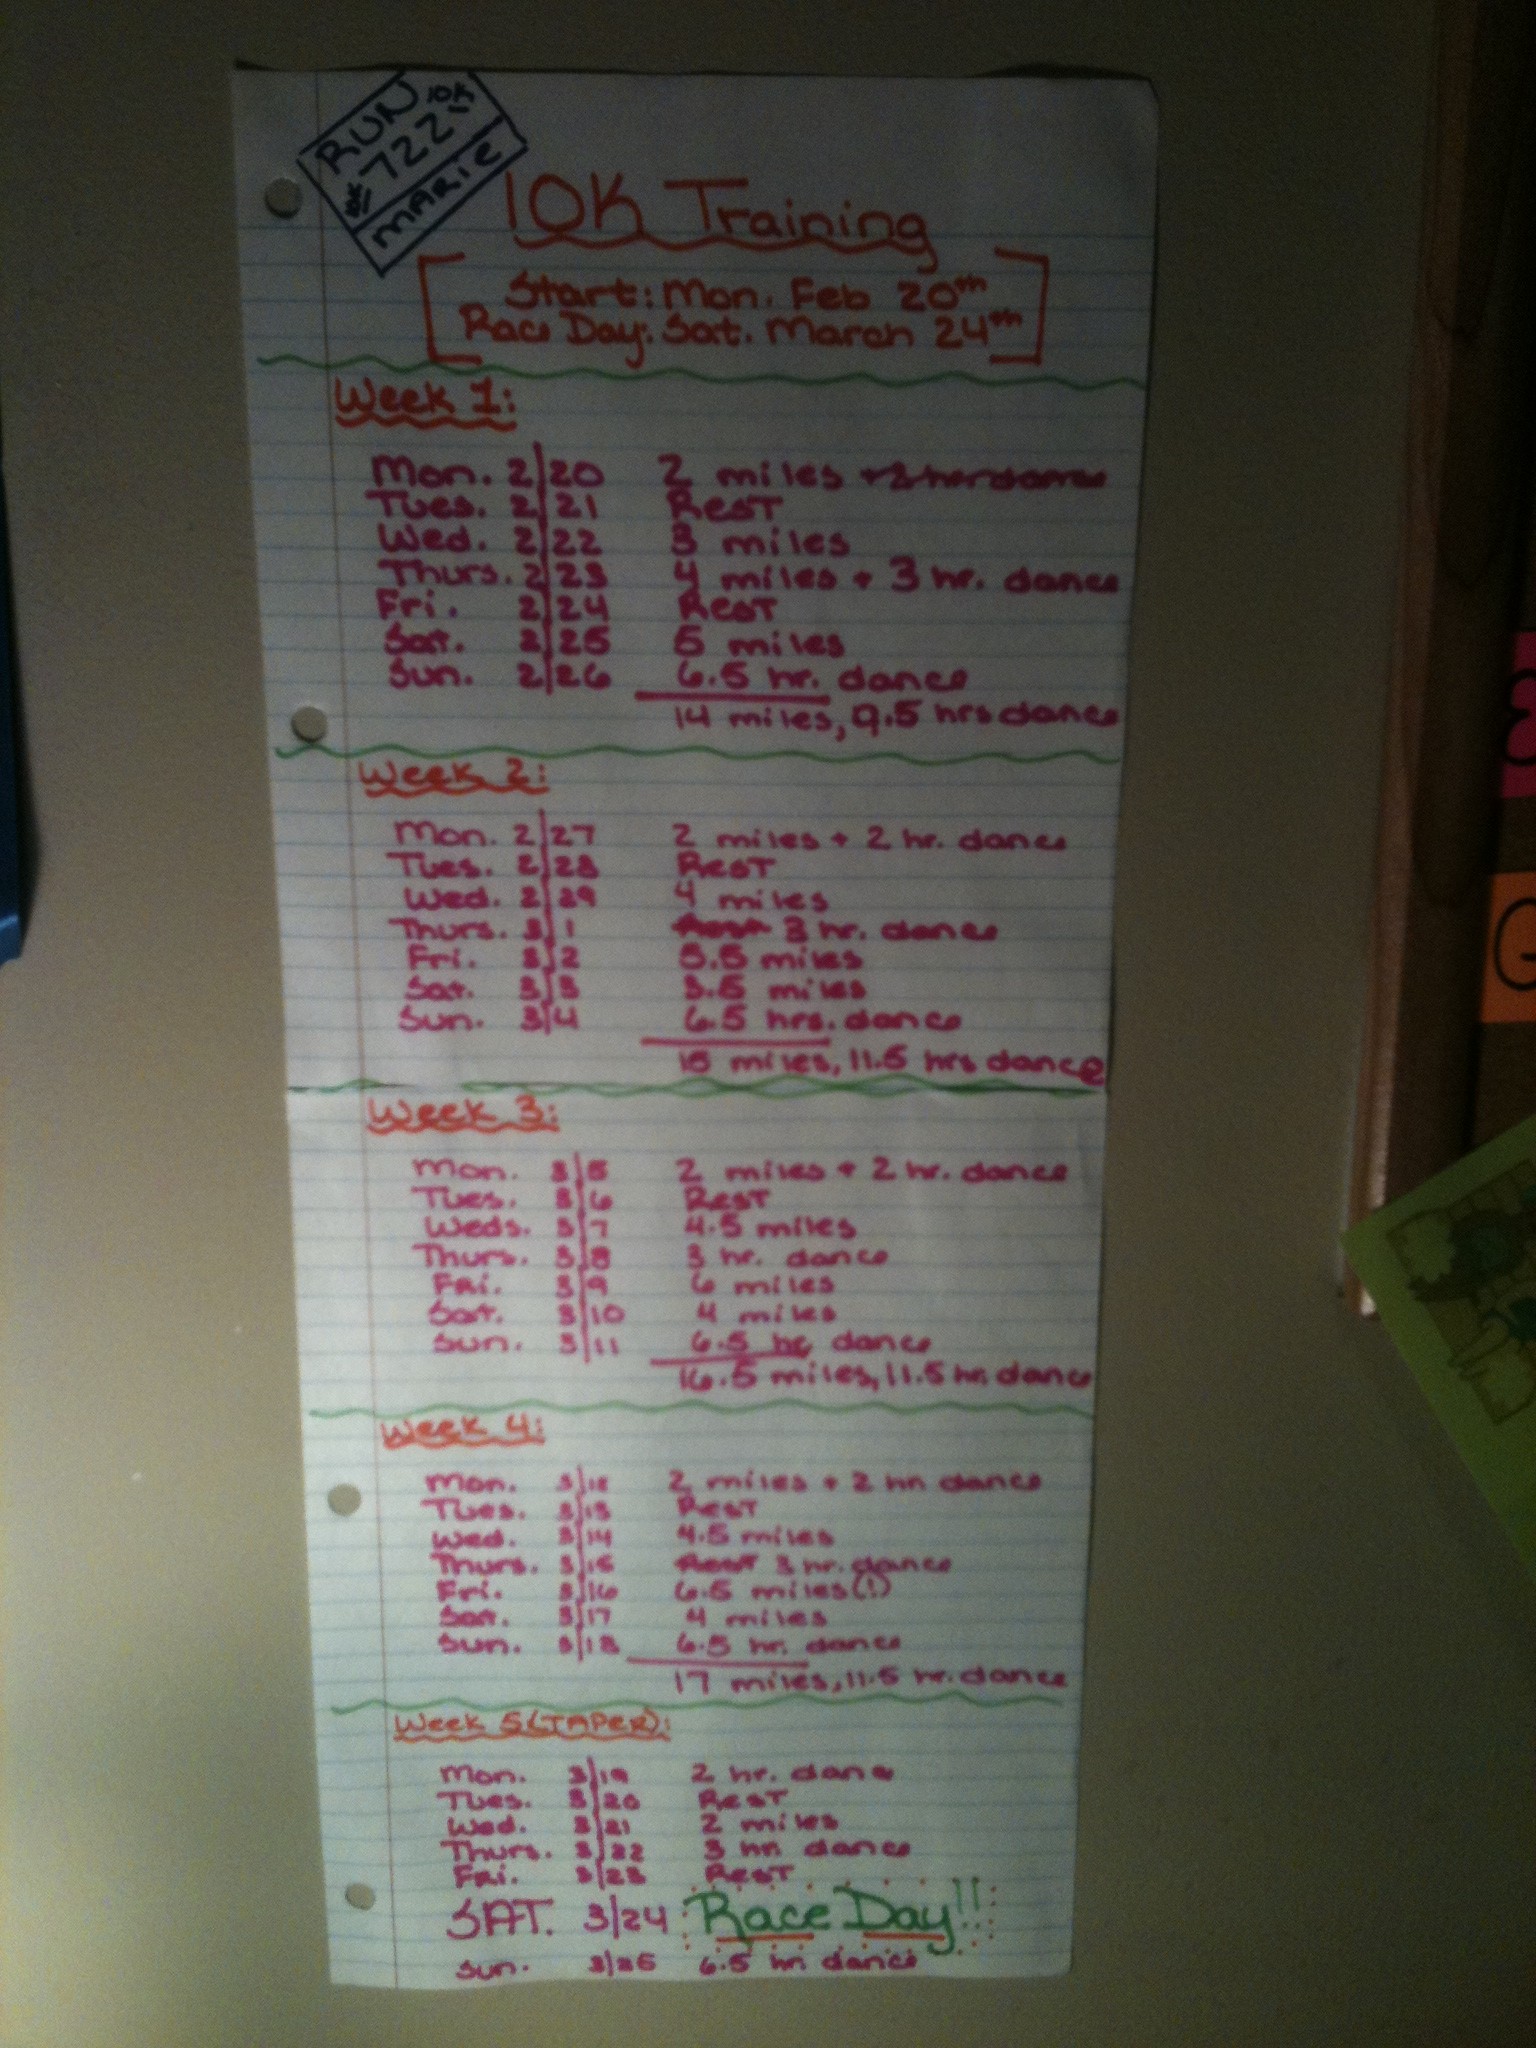 RUN 10K
# 722
MARIE
10K Training
Start: Mon. Feb 20th
Race Day: Sat. March 24th
Week 1:
Mon. 2|20 2 miles + 2 hr dance
Tues. 2|21 Rest
Wed. 2|22 3 miles
Thurs. 2|23 4 miles + 3 hr. dance
Fri. 2|24 Rest
Sat. 2|25 5 miles
Sun. 2|26 6.5 hr. dance
14 miles, 9.5 hrs dance
Week 2:
Mon. 2|27 2 miles + 2 hr. dance
Tues. 2|28 Rest
Wed. 2|29 4 miles
Thurs. 3|1 Rest 3 hr. dance
Fri. 3|2 5.5 miles
Sat. 3|3 3.5 miles
Sun. 3|4 6.5 hrs. dance
15 miles, 11.5 hrs dance
Week 3:
Mon. 3|5 2 miles + 2 hr. dance
Tues. 3|6 Rest
Weds. 3|7 4.5 miles
Thurs. 3|8 3 hr. dance
Fri. 3|9 6 miles
Sat. 3|10 4 miles
Sun. 3|11 6.5 hr dance
16.5 miles, 11.5 hr. dance
Week 4:
Mon. 3|12 2 miles + 2 hr. dance
Tues. 3|13 Rest
Wed. 3|14 4.5 miles
Thurs. 3|15 Rest 3 hr. dance
Fri. 3|16 6.5 miles (!)
Sat. 3|17 4 miles
Sun. 3|18 6.5 hr. dance
17 miles, 11.5 hr. dance
Week 5 (TAPER):
Mon. 3|19 2 hr. dance
Tues. 3|20 Rest
Wed. 3|21 2 miles
Thurs. 3|22 3 hr. dance
Fri. 3|23 Rest
SAT. 3|24 Race Day!!
Sun. 3|25 6.5 hr. dance
G